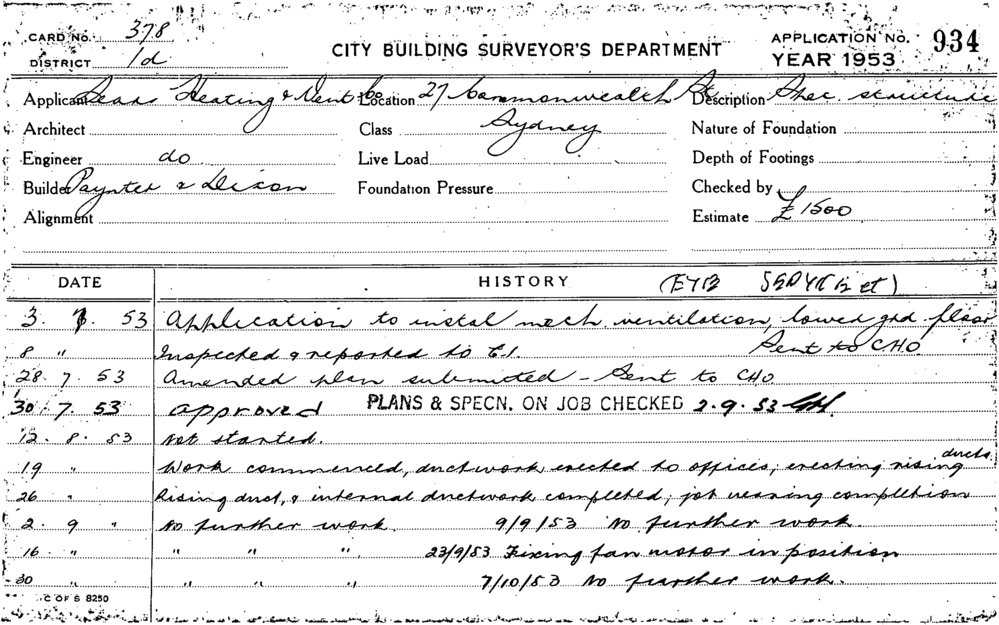 CARD No. 378
CITY BUILDING SURVEYOR'S DEPARTMENT
APPLICATION No. 934
DISTRICT 1d
YEAR 1953
Applicant Sears Heating & Vent Co Location 27 Commonwealth St Description Spec. structure
Architect Class Sydney Nature of Foundation
Engineer do Live Load Depth of Footings
Builder Paynter & Dixon Foundation Pressure Checked by
Alignment Estimate £1500
DATE HISTORY
3. 7. 53 Application to instal mech. ventilation, lower grd floor
Sent to CHO
8 " Inspected & reported to E.I.
28. 7. 53 Amended plan submitted – Sent to CHO
30. 7. 53 approved PLANS & SPECN. ON JOB CHECKED 2.9.53
12. 8. 53 Not started.
19 " Work commenced, ductwork erected to offices, erecting rising ducts
26 " Rising duct, & internal ductwork completed, job nearing completion
2. 9 " No further work. 9/9/53 No further work.
16. " " " " 23/9/53 Fixing fan motor in position
30 " " " " 7/10/53 No further work.
C OF S 8250